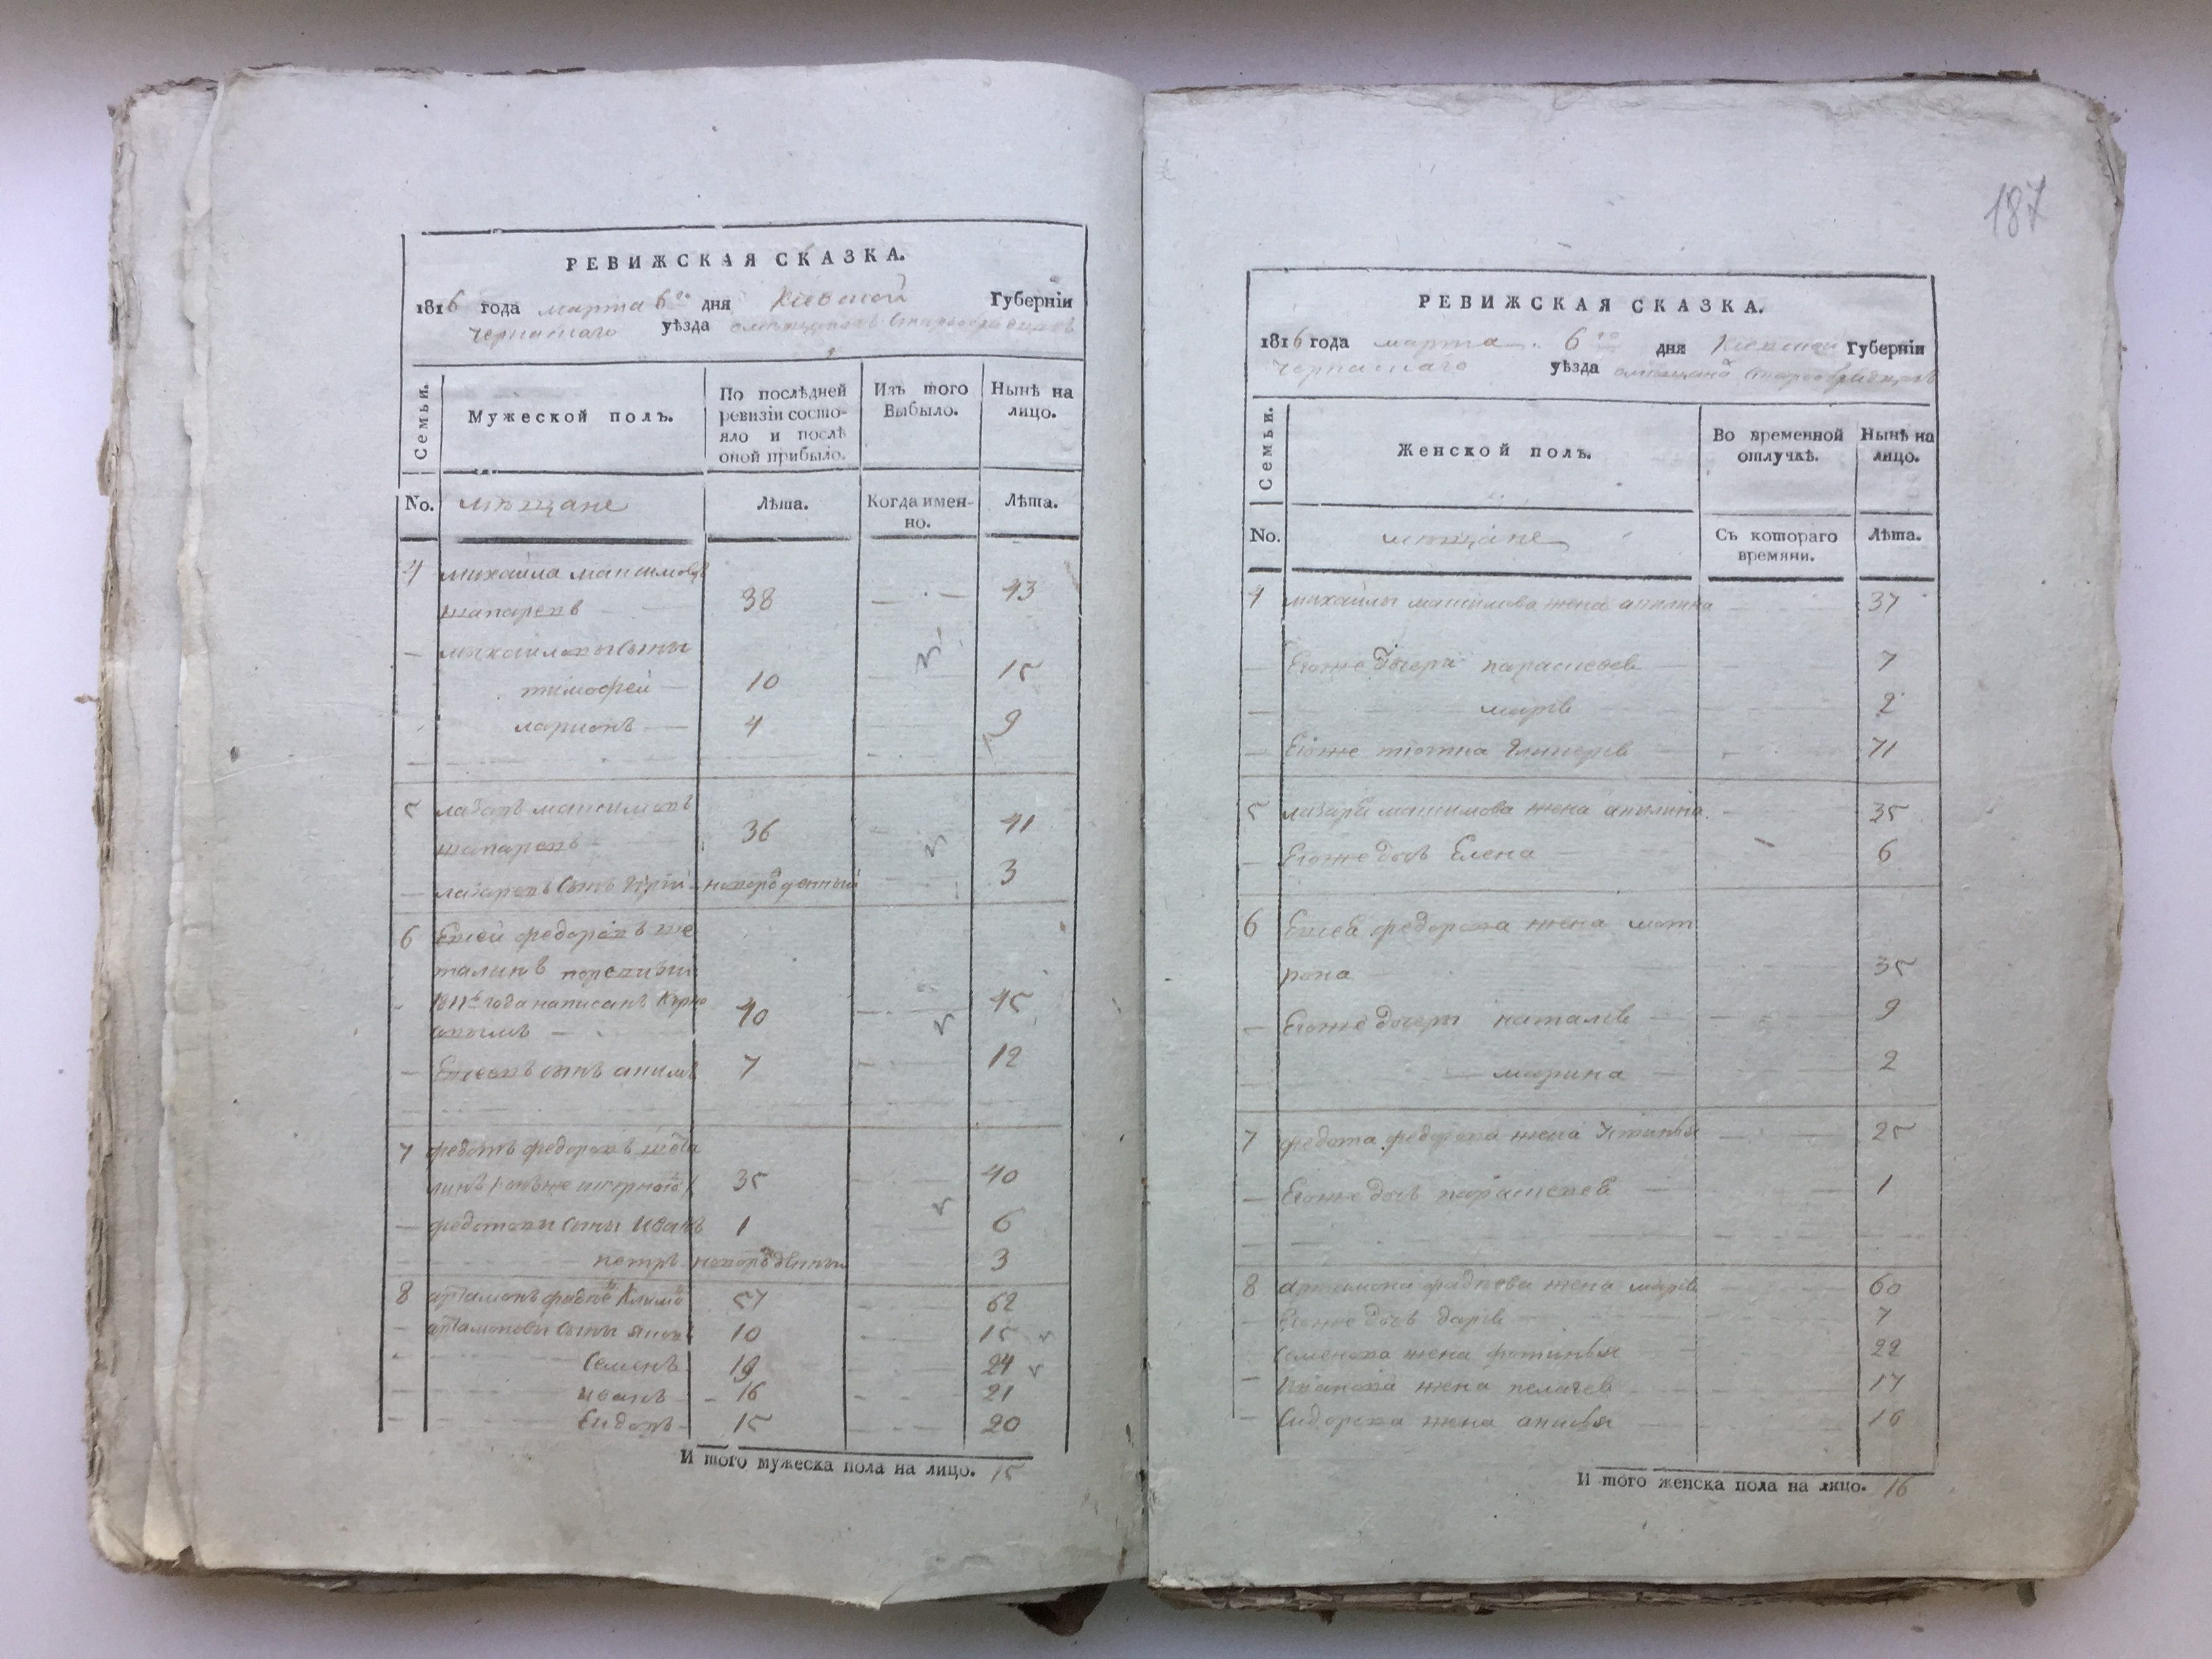 РЕВИЖСКАЯ СКАЗКА.
1816 года марта 6го дня Кіевской Губерніи
Черкаскаго уѣзда старообрядцахъ
Семьи.
Мужеской полъ.
По послѣдней ревизіи состояло и послѣ оной прибыло.
Изъ того Выбыло.
Нынѣ на лицо.
No. мѣщане Лѣта. Когда именно. Лѣта.
4 михайла максимовъ
38 43
михайловы сыны
тимофей 10 15
ларионъ 4 9
5 лазарь максимовъ
36 41
лазаревъ сынъ новорожденный 3
6 Евсей федоровъ ше
талинъ поревизіи
1811го года написанъ
40 45
Евсеевъ сынъ акимъ 7 12
7 федотъ федоровъ шета
линъ 35 40
федотовы сыны Иванъ 1 6
петръ новорожденный 3
8 артамонъ фадѣе 57 62
артамоновы сыны яковъ 10 15
Семенъ 19 24
иванъ 16 21
Сидоръ 15 20
И того мужеска пола на лицо. 15
187
РЕВИЖСКАЯ СКАЗКА.
1816 года марта 6го дня Кіевской Губерніи
Черкаскаго уѣзда старообрядцахъ
Семьи.
Женской полъ.
Во временной отлучкѣ.
Нынѣ на лицо.
No. мѣщане Съ котораго времяни. Лѣта.
4 михайлы максимова жена акилина 37
Егоже дочери параскевѣ 7
марѣ 2
Егоже тіотка 71
5 лазаря максимова жена акилина 35
Егоже дочь Елена 6
6 Евсея федорова жена мат
рона 35
Егоже дочери наталѣ 9
марина 2
7 федота федорова жена Устинья 25
Егоже дочь параскевѣ 1
8 артамона фадѣева жена марѣ 60
Егоже дочь дарѣ 7
Семенова жена фотинья 22
Иванова жена пелагеѣ 17
Сидорова жена анисья 16
И того женска пола на лицо. 16